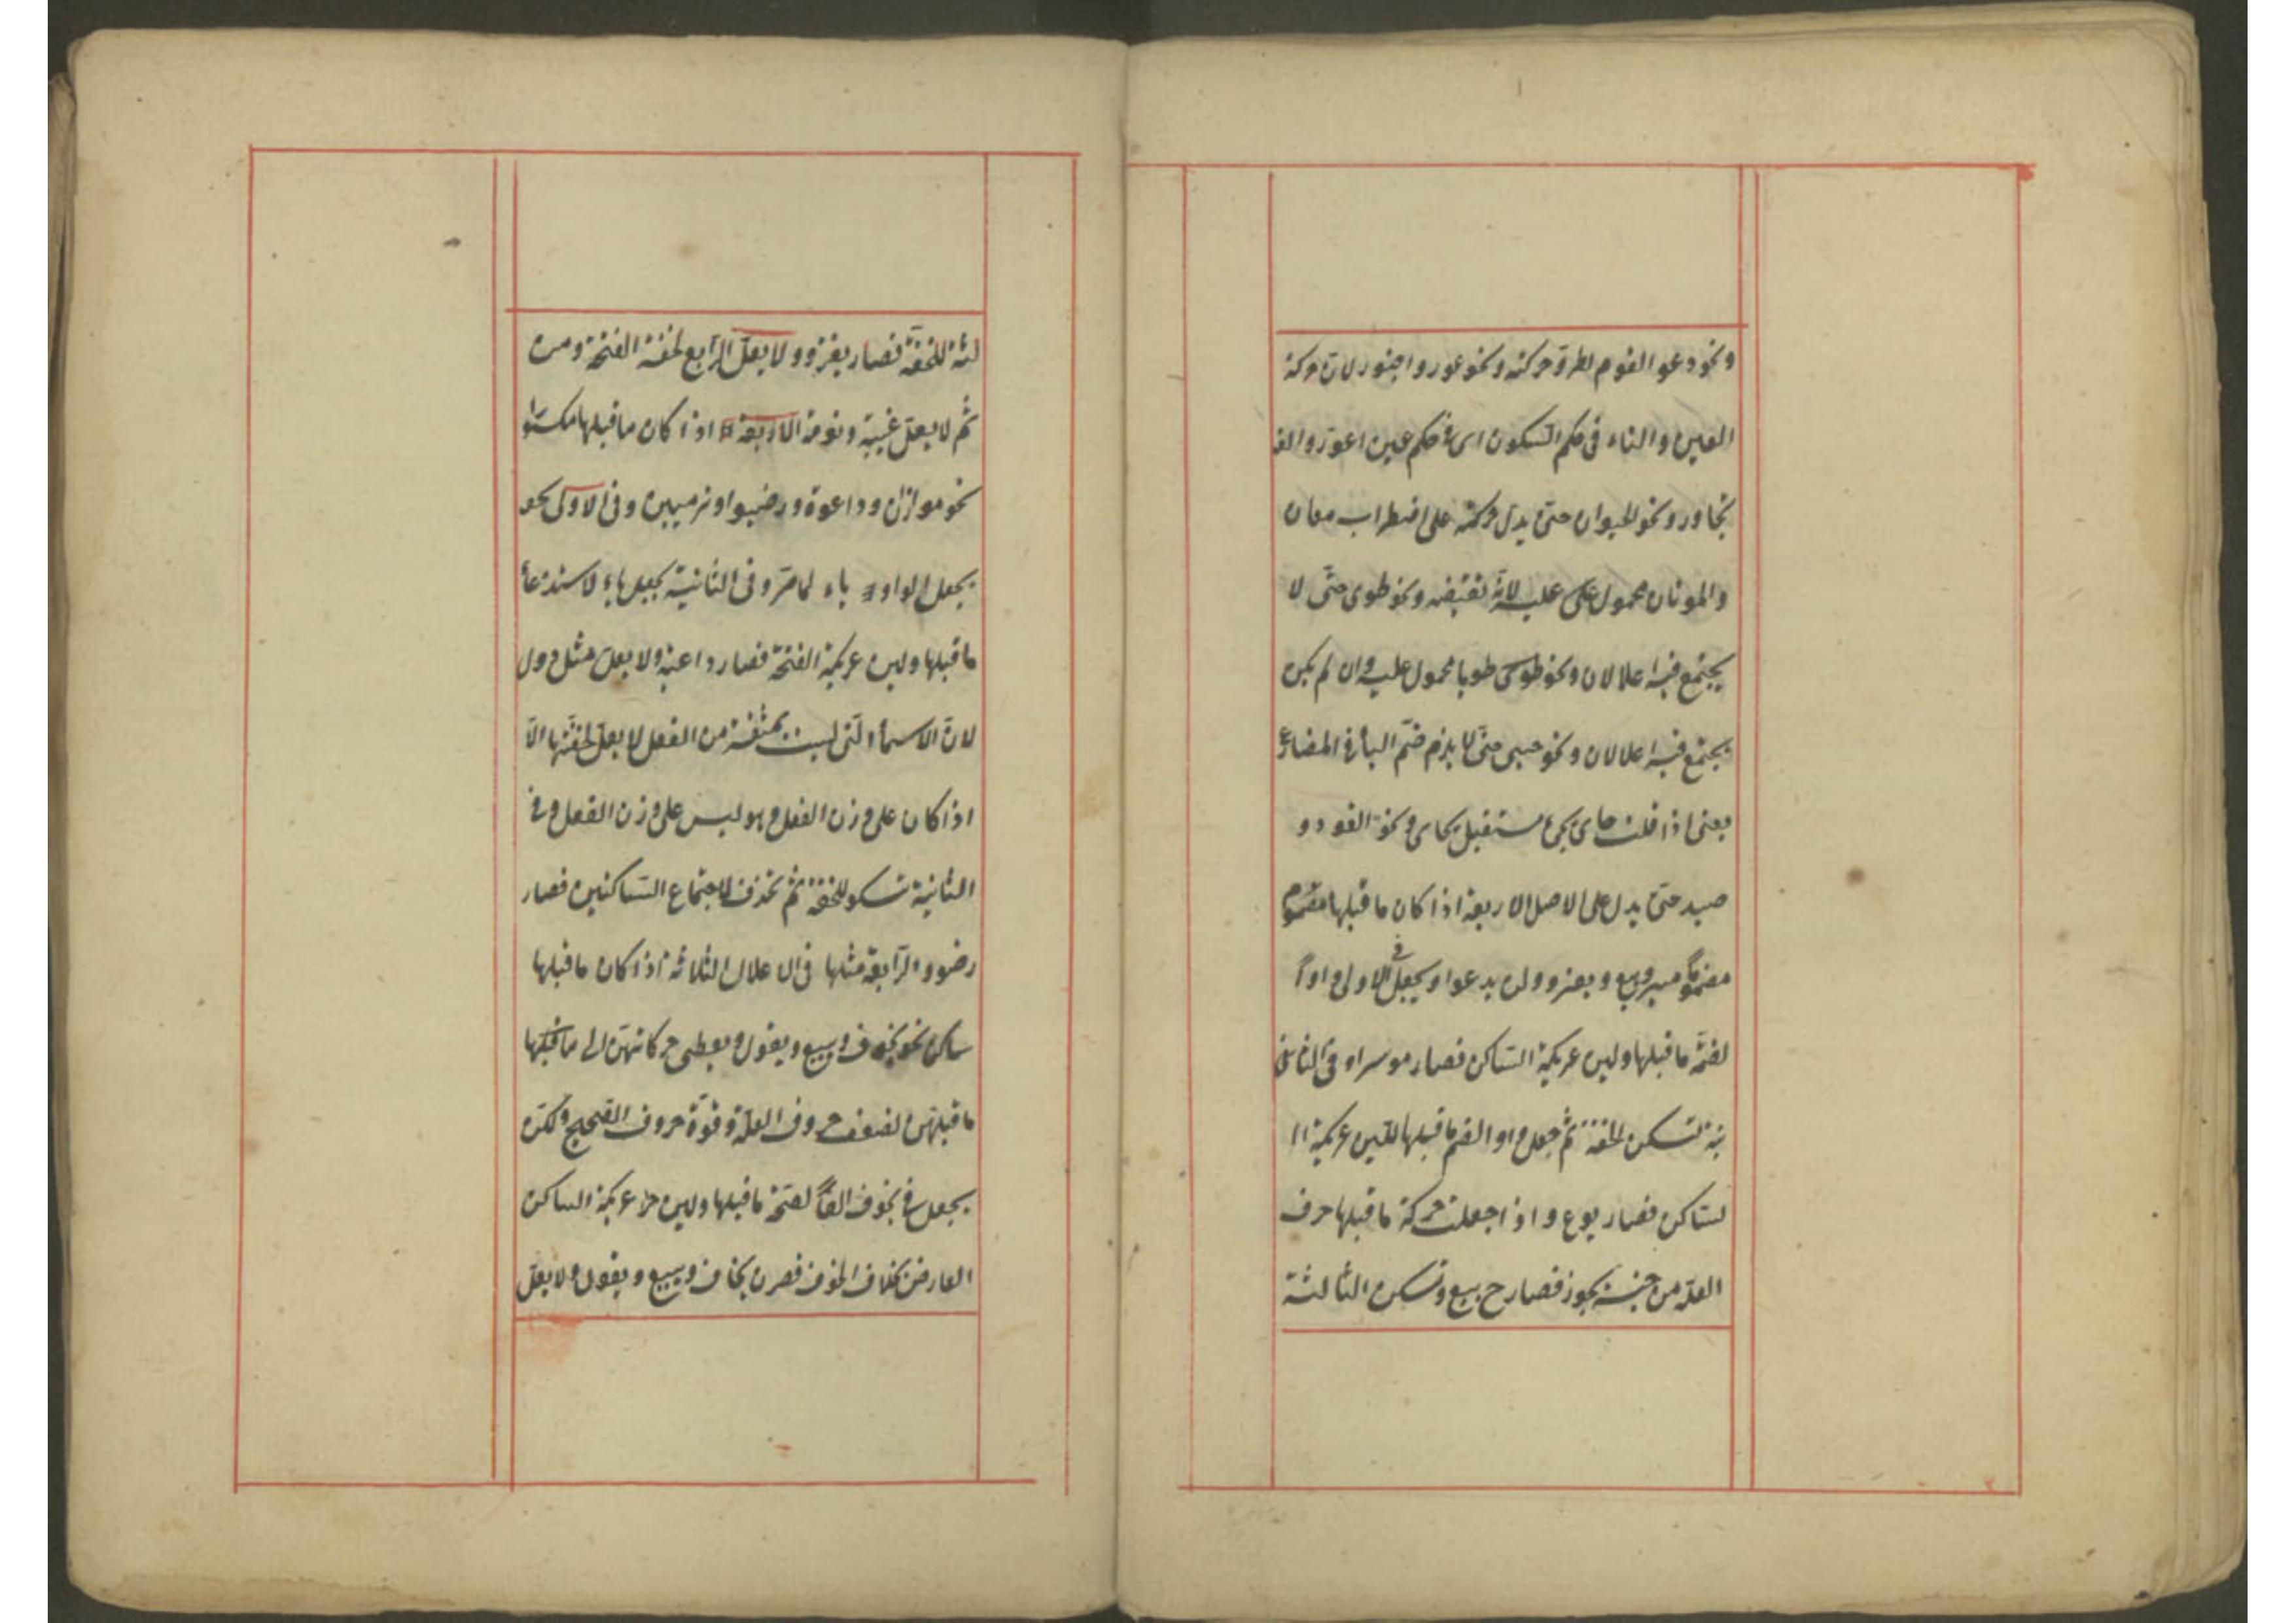 ونحو دعو القوم لطروّ حركته ونحو عور واجتور لان حركة
العين والتاء فى حكم السكون اى فى حكم عين اعوزّ والف
تجاور ونحو الحيوان حتى يدل حركته على اضطراب معان
والموتان محمول على عليه لانّه نقيضه ونحو طوى حتّى لا
يجتمع فيه اعلالان ونحو طوى طويا محمول عليه وان لم يكن
يجتمع فيه اعلالان ونحو حيى حتّى لا يلزم ضمّ الياء فى المضارع
يعنى اذا قلت حاى يجئ مستقبل يحاى ونحو القود و
صيد حتى يدل على الاصل الاربعة اذا كان ما قبلها مضموم
مضموماً ميسر وبيع ويغزو ولن يدعوا ويجعل فى الاولى واواً
لضمّة ما قبلها ولين عريكة السّاكن فصار موسرا وفى الثا
نية تسكن للخفة ثم جعل واو الضم ما قبلها للين عريكة ا
لساكن فصار بوع واذا جعلت حركة ما قبلها حرف
العلة من جنسه يجوز فصار ح بيع وتسكن الثالثة
لثة للخفّة فصار يغزو ولا يعلّ الرّابع لخفة الفتحة ومن
ثم لا يعلّ غيبة ونومة الاربعة اذا كان ما قبلها مكسورا
نحو موازن وداعوة ورضيوا وترميين وفى الاولى يجعل
يجعل الواو ياء لما مرّ وفى الثانية يجعل ياء لاستدعاء
ما قبلها ولين عريكة الفتحة فصار داعية ولا يعل مثل دول
لانّ الاسماء التى ليست بمشتقة من الفعل لا يعل لخفّتها الّا
اذا كان على وزن الفعل وهو ليس على وزن الفعل وفى
الثانية تسكن للخفة ثم تحذف لاجتماع السّاكنين فصار
رضوا والرّابعة مثلها فى الاعلال الثلاثة اذا كان ما قبلها
ساكن نحو يخوف ويبيع ويقول ويعطى حركاتهنّ الى ما قبلها
ما قبلهن لضعف حروف العلّة وقوّة حروف الصّحيح ولكن
يجعل فى يخوف الفاً لفتحة ما قبلها ولين عريكة الساكن
العارض بخلاف الخوف فصرن يخاف ويبيع ويقول ولا يعل